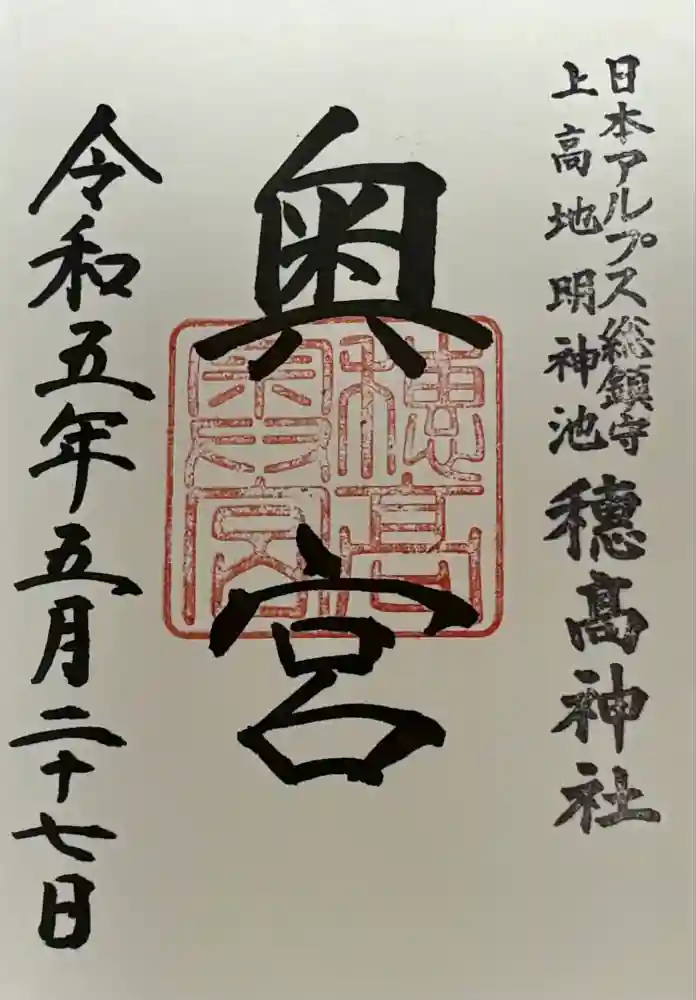 日本アルプス総鎮守
上高地明神池
穂髙神社
奥宮
穂高
奥宮
令和五年五月二十七日